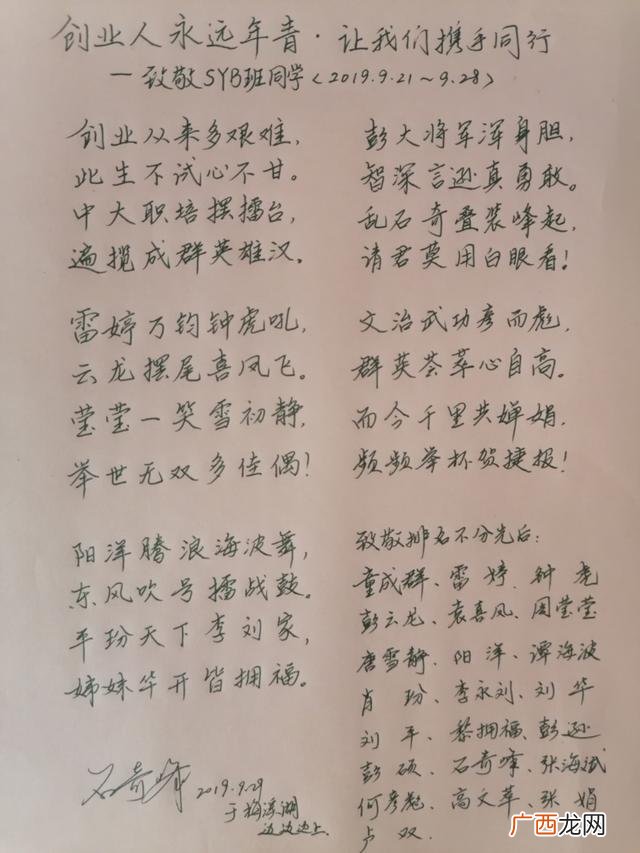 创业人永远年青·让我们携手同行
—致敬SYB班同学(2019.9.21~9.28)
创业从来多艰难，
此生不试心不甘。
中大职培摆擂台，
遍揽成群英雄汉。
雷婷万钧钟虎吼，
云龙摆尾喜凤飞。
莹莹一笑雪初静，
举世无双多佳偶！
阳洋腾浪海波舞，
东风吹号擂战鼓。
平玢天下李刘家，
姊妹华开皆拥福。
石奇峰 2019.9.29
于梅溪湖
边边边上
彭大将军浑身胆，
智深言逊真勇敢。
乱石奇叠装峰起，
请君莫用白眼看！
文治武功彦而彪，
群英荟萃心自高。
而今千里共婵娟，
频频举杯贺捷报！
致敬排名不分先后：
童成群、雷婷、钟虎
彭云龙、袁喜凤、周莹莹
唐雪静、阳洋、谭海波
肖玢、李永刘、刘华
刘平、黎拥福、彭逊
彭硕、石奇峰、张海斌
何彦彪、高文萃、张娟
卢双.
广西龙网